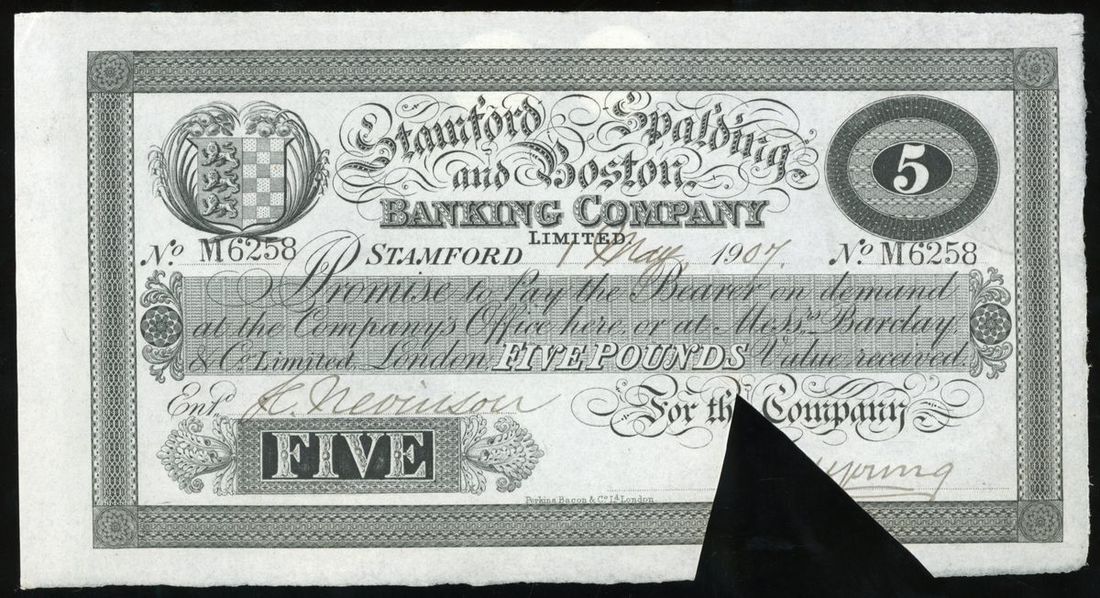 Stamford Spalding
and Boston
BANKING COMPANY
LIMITED.
5
No. M6258 STAMFORD 1 May 1907. No. M6258
I Promise to Pay the Bearer on demand
at the Company's Office here, or at Messrs. Barclay,
& Co. Limited, London, FIVE POUNDS Value received
Entd. Nevinson For the Company
FIVE
Young
Perkins Bacon & Co. Ld. London.